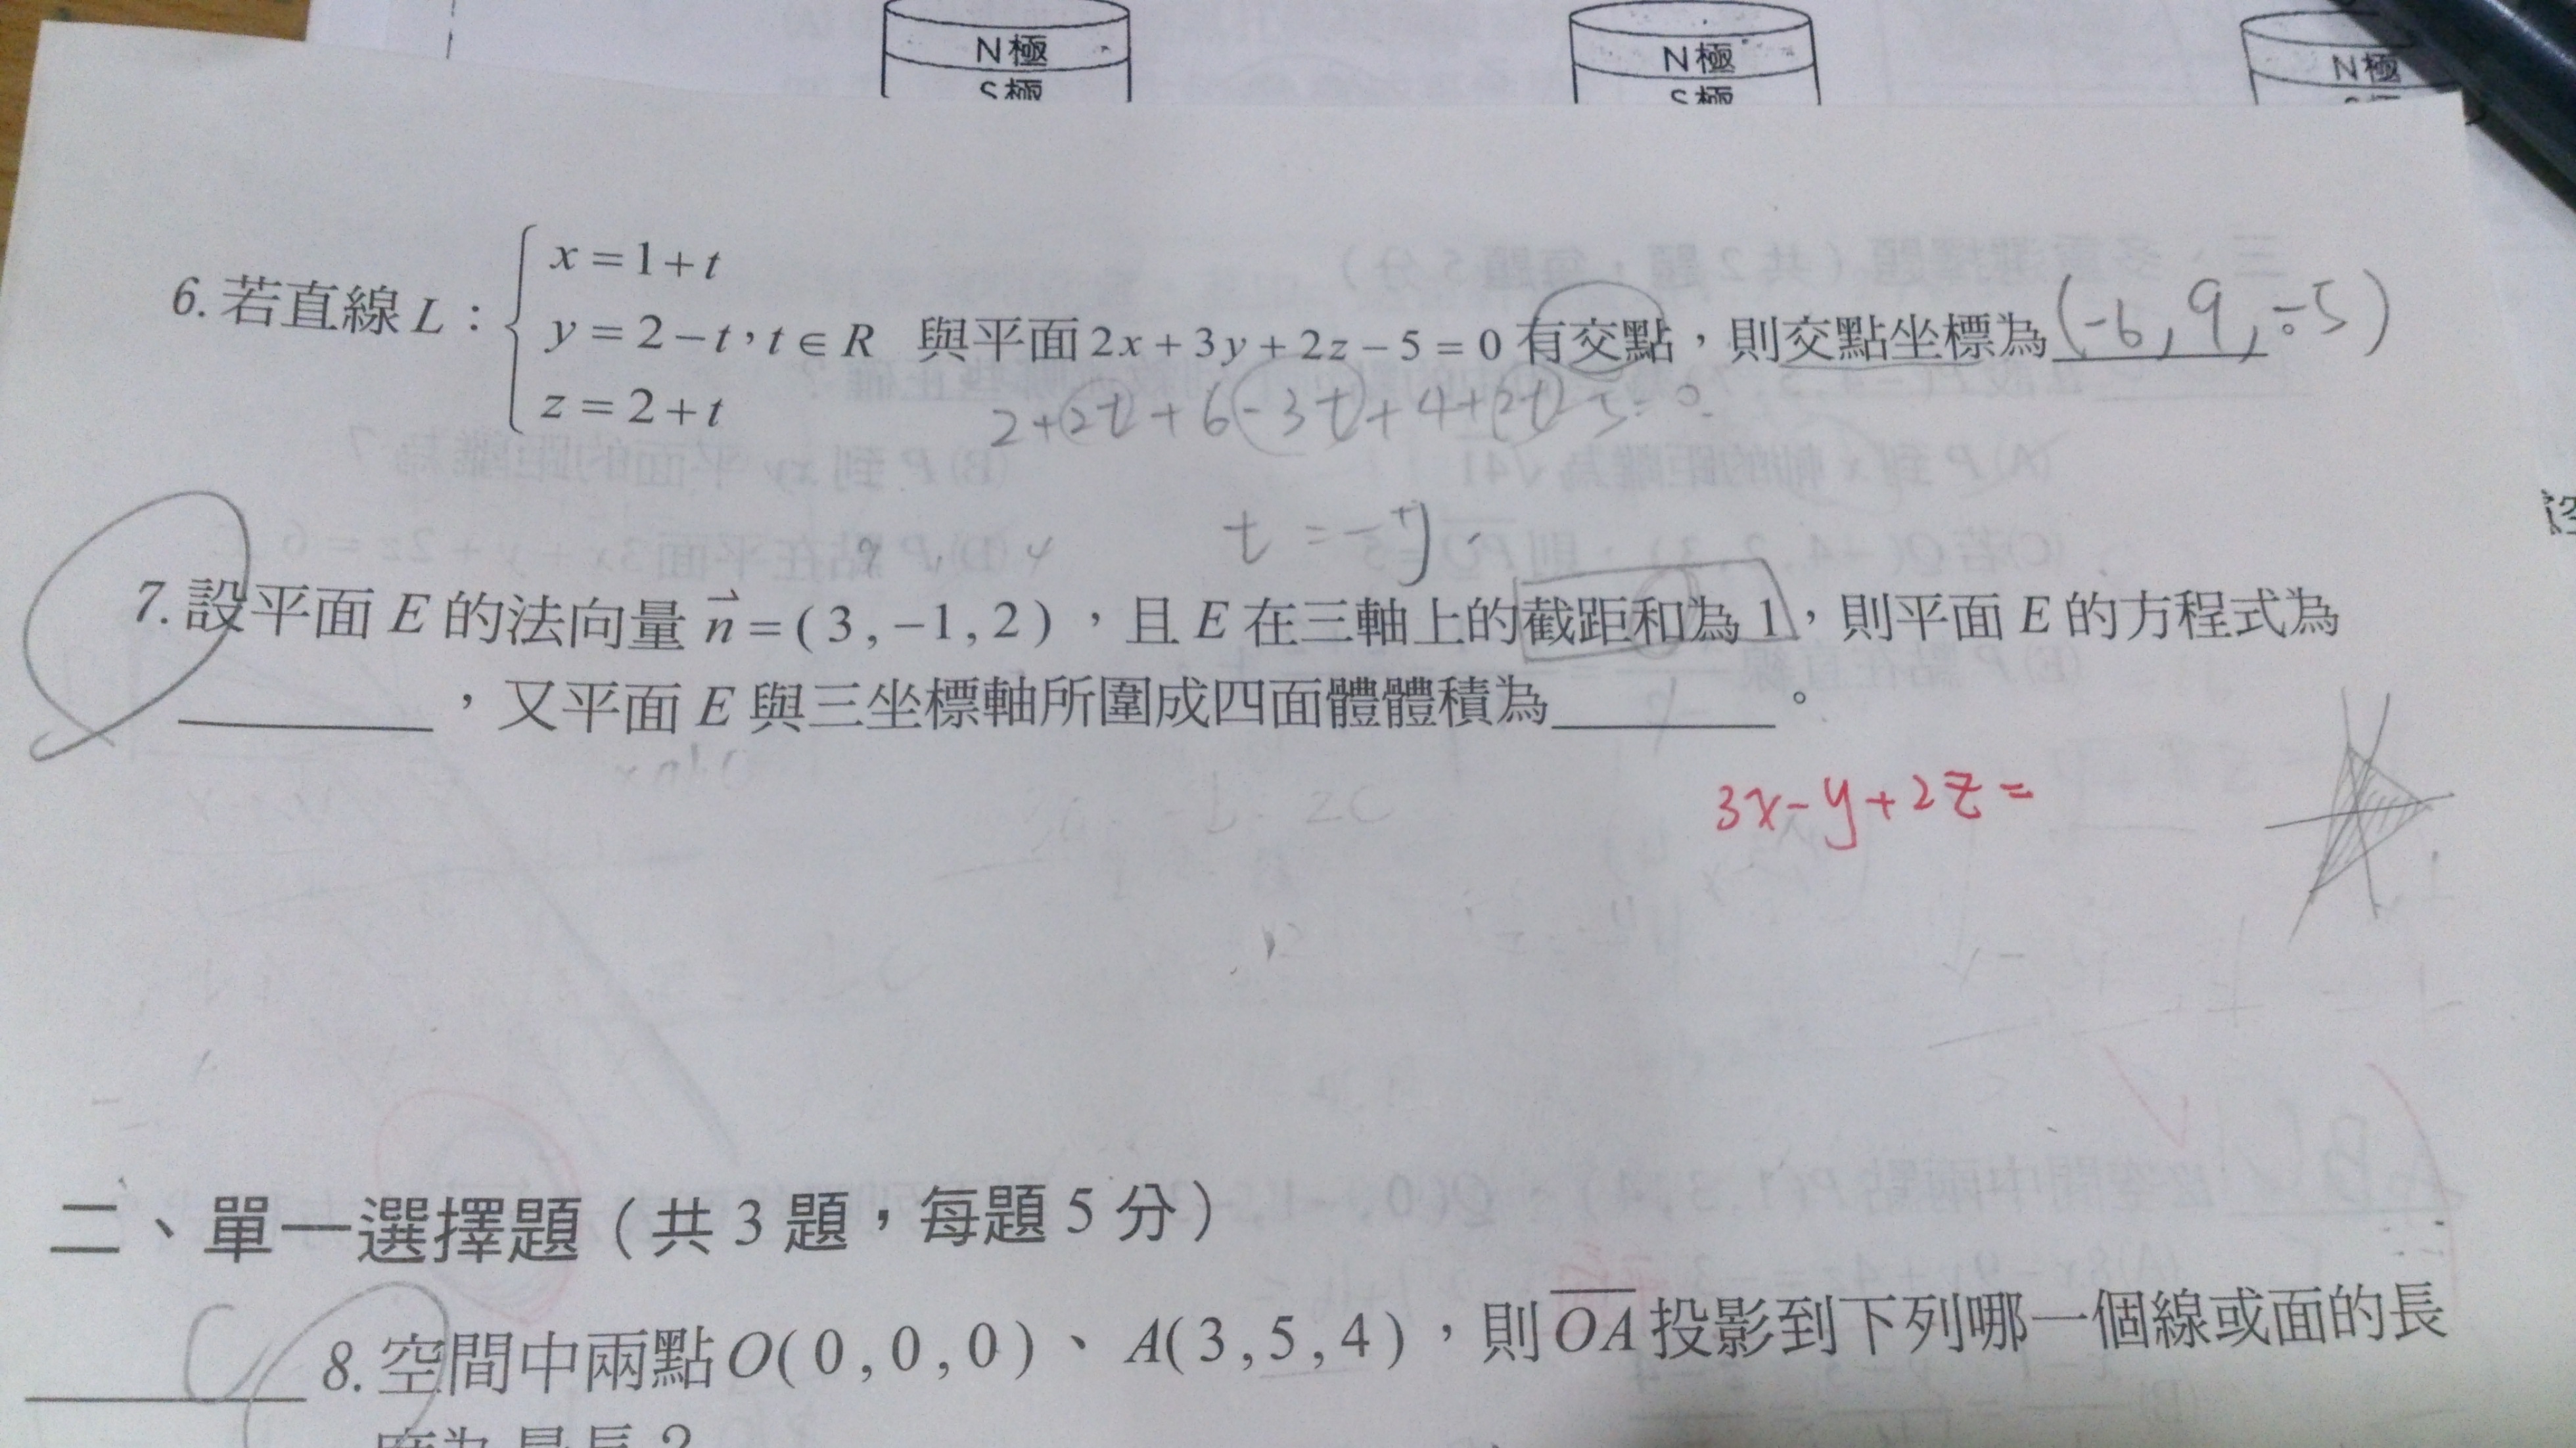 N極 N極 N極
S極 S極
6. 若直線 L : { x = 1 + t
y = 2 − t , t ∈ R 與平面 2x + 3y + 2z − 5 = 0 有交點，則交點坐標為 (-6, 9, -5)
z = 2 + t
2+2t+6-3t+4+2t-5=0
t = -7
7. 設平面 E 的法向量 n⃗ = ( 3 , −1 , 2 ) ，且 E 在三軸上的截距和為 1，則平面 E 的方程式為
＿＿＿＿，又平面 E 與三坐標軸所圍成四面體體積為＿＿＿＿。
3x-y+2z=
二、單一選擇題（共 3 題，每題 5 分）
C 8. 空間中兩點 O( 0 , 0 , 0 ) 、 A( 3 , 5 , 4 ) ，則 OA 投影到下列哪一個線或面的長